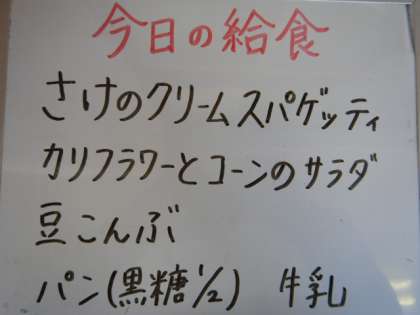 今日の給食
さけのクリームスパゲッティ
カリフラワーとコーンのサラダ
豆こんぶ
パン(黒糖1/2) 牛乳